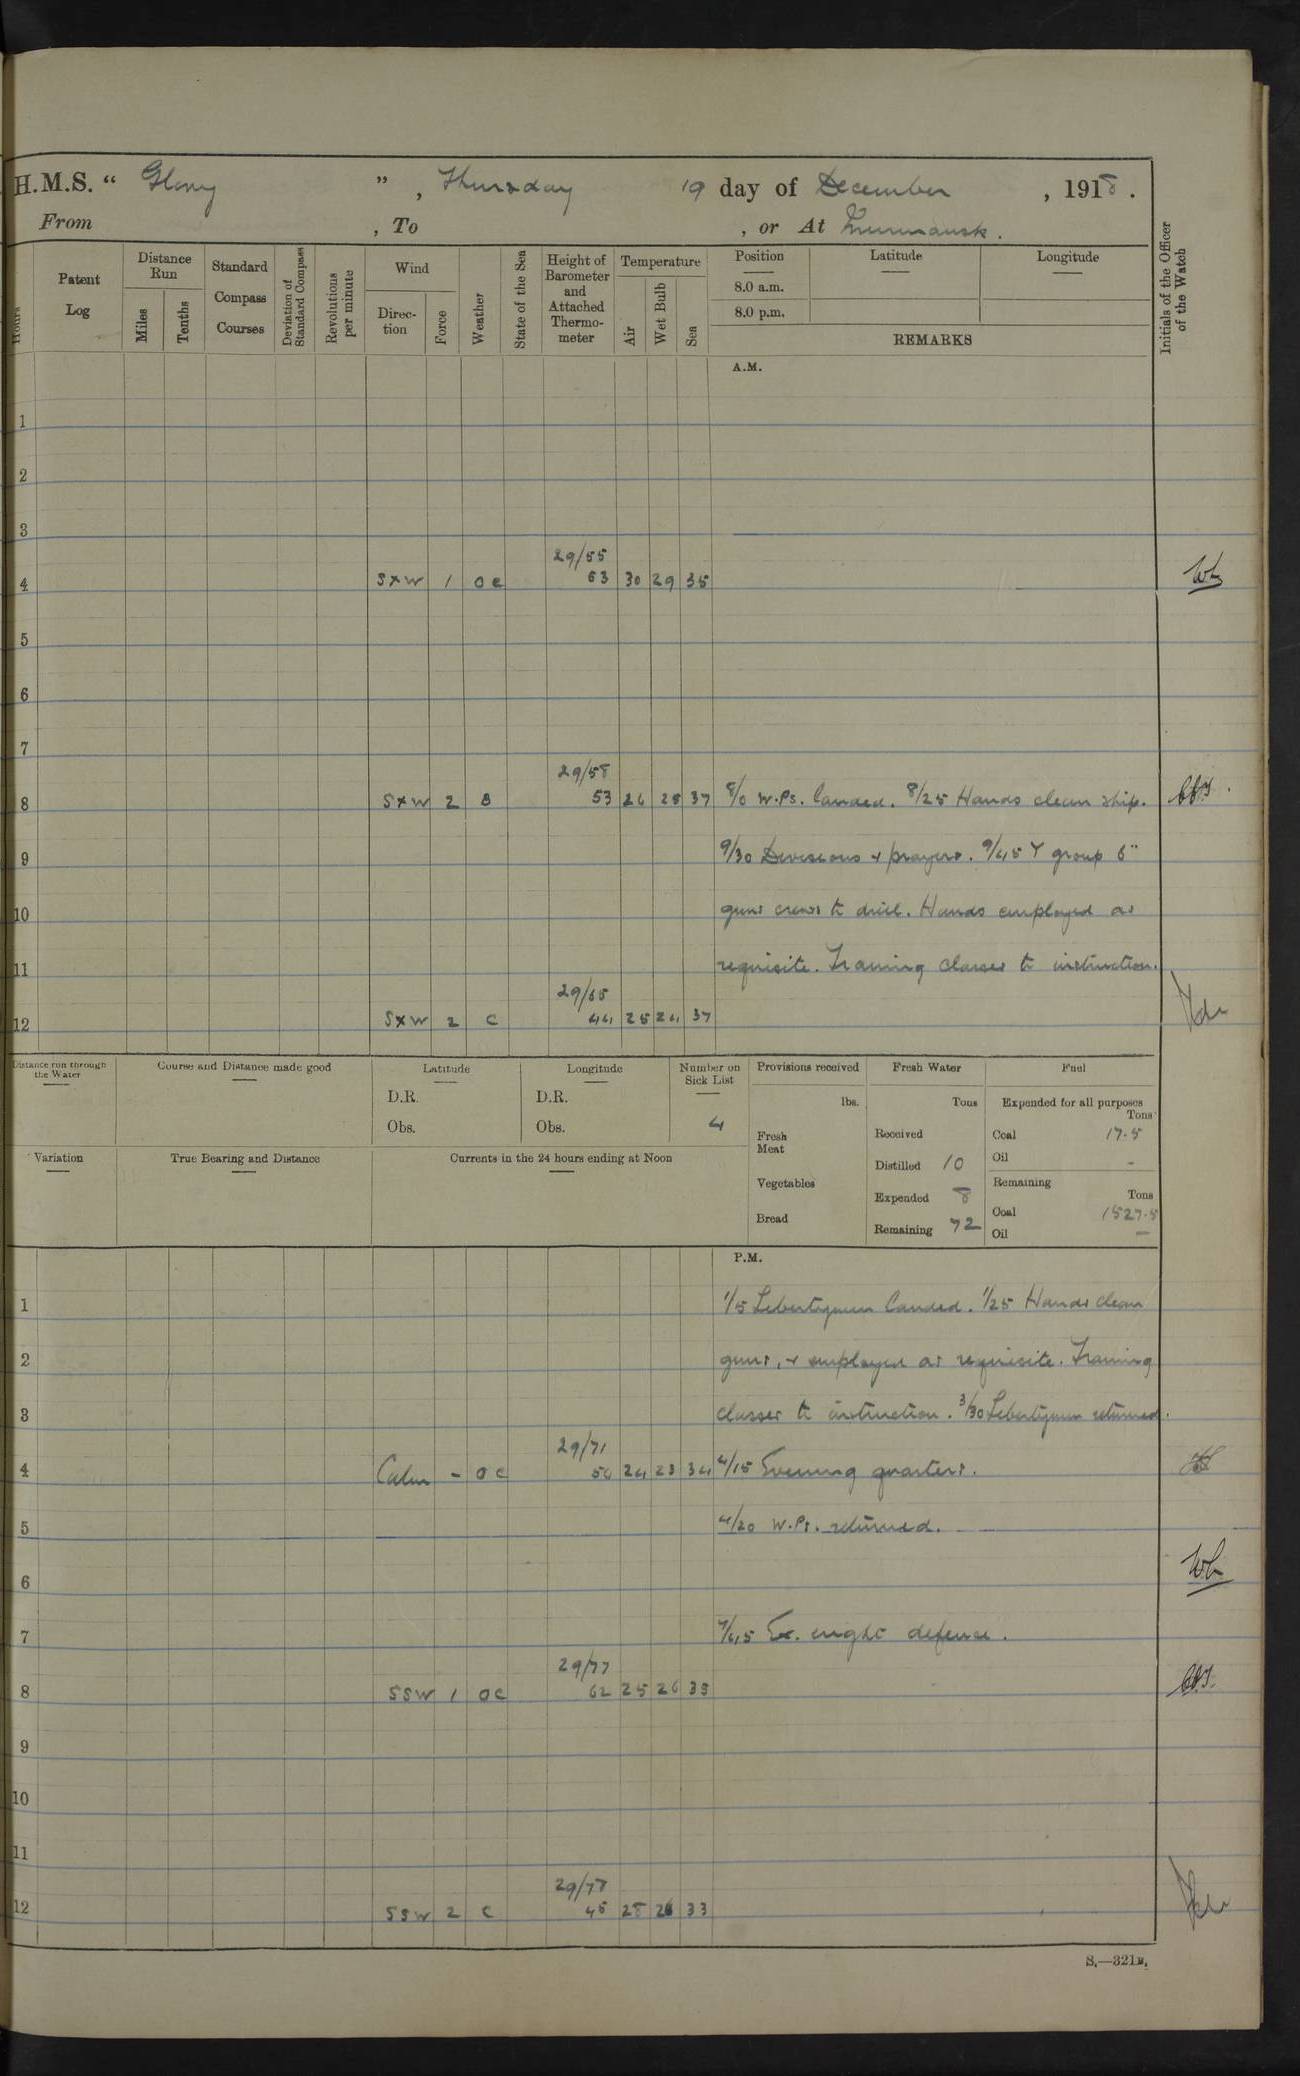 H.M.S. “ Glory ” , Thursday 19 day of December , 1918 .
From , To , or At Murmansk .
Hours
Patent Log
Distance Run
Miles
Tenths
Standard Compass Courses
Deviation of Standard Compass
Revolutions per minute
Wind
Direction
Force
Weather
State of the Sea
Height of Barometer and Attached Thermometer
Temperature
Air
Wet Bulb
Sea
Position
8.0 a.m.
8.0 p.m.
Latitude
Longitude
REMARKS
Initials of the Officer of the Watch
A.M.
1
2
3
29/55
4 SxW 1 OC 53 30 29 35
5
6
7
29/58
8 SxW 2 B 53 26 25 37 8/0 W.Ps. landed. 8/25 Hands clean ship.
9 9/30 Divisions + prayers. 9/45 Y group 6"
10 guns crews to drill. Hands employed as
11 requisite. Training classes to instruction.
29/65
12 SxW 2 C 44 25 24 37
Distance run through the Water
Course and Distance made good
Latitude
D.R.
Obs.
Longitude
D.R.
Obs.
Number on Sick List
4
Provisions received
lbs.
Fresh Meat
Vegetables
Bread
Fresh Water
Tons
Received
Distilled 10
Expended 8
Remaining 72
Fuel
Expended for all purposes
Tons
Coal 17.5
Oil -
Remaining
Tons
Coal 1527.5
Oil -
Variation
True Bearing and Distance
Currents in the 24 hours ending at Noon
P.M.
1 1/5 Libertymen landed. 1/25 Hands clean
2 guns, + employed as requisite. Training
3 classes to instruction. 3/30 Libertymen returned.
29/71
4 Calm - OC 50 24 23 34 4/15 Evening quarters.
5 4/20 W.Ps. returned.
6
7 7/45 Ex. night defence.
29/77
8 SSW 1 OC 62 25 26 35
9
10
11
29/77
12 SSW 2 C 45 28 26 33
S.—321B.